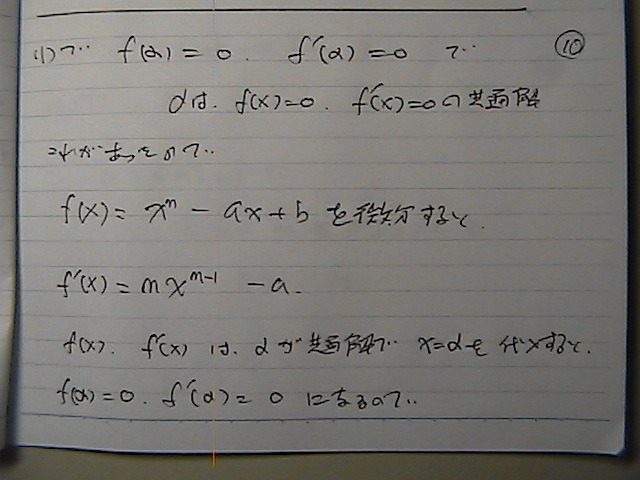 (1)で f(α) = 0. f'(α) = 0 で ⑩
αは. f(x)=0. f'(x)=0の共通解
これがあったので
f(x) = x^n - ax + b を微分すると.
f'(x) = n x^{n-1} - a.
f(x). f'(x) は. αが共通解で x=αを代入すると.
f(α)=0. f'(α)= 0 になるので